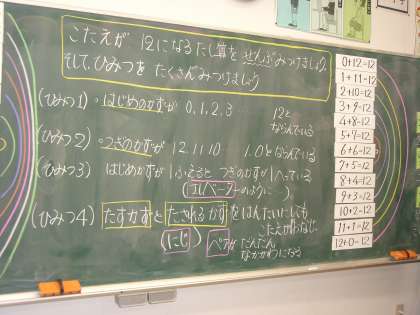 こたえが 12になるたし算をぜんぶみつけましょう。
そして、ひみつをたくさんみつけましょう
(ひみつ1)。はじめのかずが 0、1、2、3 12と
ならんでいる
(ひみつ2)。つぎのかずが 12、11、10 1、0とならんでいる
(ひみつ3) はじめかずが1ふえると つぎのかずが1へっている
(エレベーターのように)。
(ひみつ4) たすかずとたされるかずをはんたいにしても
こたえがおなじ。
(にじ) ペアがだんだん
なかがわになる
0+12=12
1+11=12
2+10=12
3+9=12
4+8=12
5+7=12
6+6=12
7+5=12
8+4=12
9+3=12
10+2=12
11+1=12
12+0=12